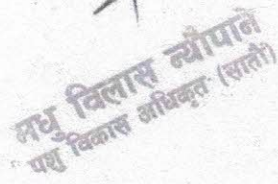 मधु विलास न्यौपाने
पशु विकास अधिकृत (सातौं)